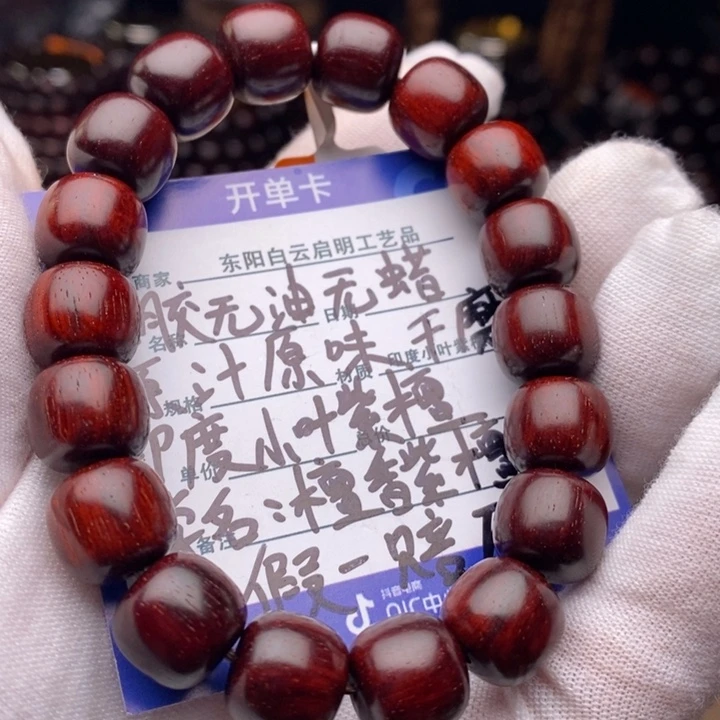 开单卡
东阳白云启明工艺品
商家
胶无油无蜡
日期
名称
汁原味 手
材质 印度小叶紫
规格
印度小叶紫檀
单价
总价
名：檀香紫檀
备注
假一赔
抖音电商